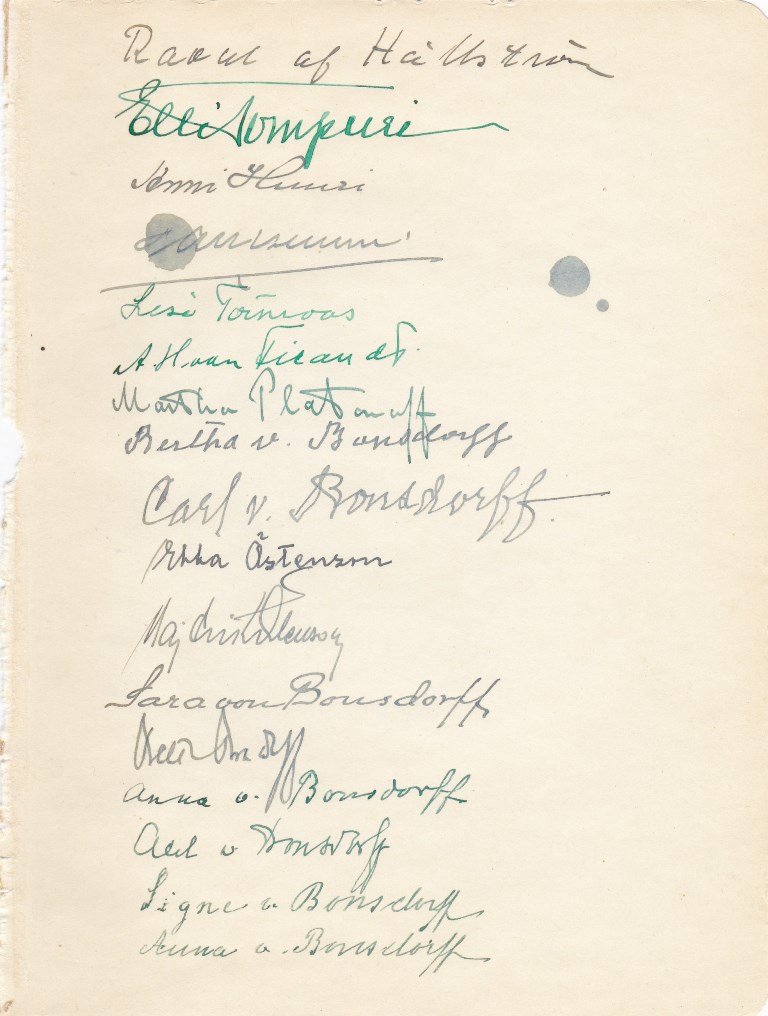 Raoul af Hällström
Elli Tompuri
Anni Huuri
Lisi Törnroos
A. H. van
Martha Platonoff
Bertha v. Bonsdorff
Carl v. Bonsdorff
Ebba Östenson
Maj
Sara von Bonsdorff
Anna v. Bonsdorff
Axel v Bonsdorff
Signe v. Bonsdorff
Anna v. Bonsdorff